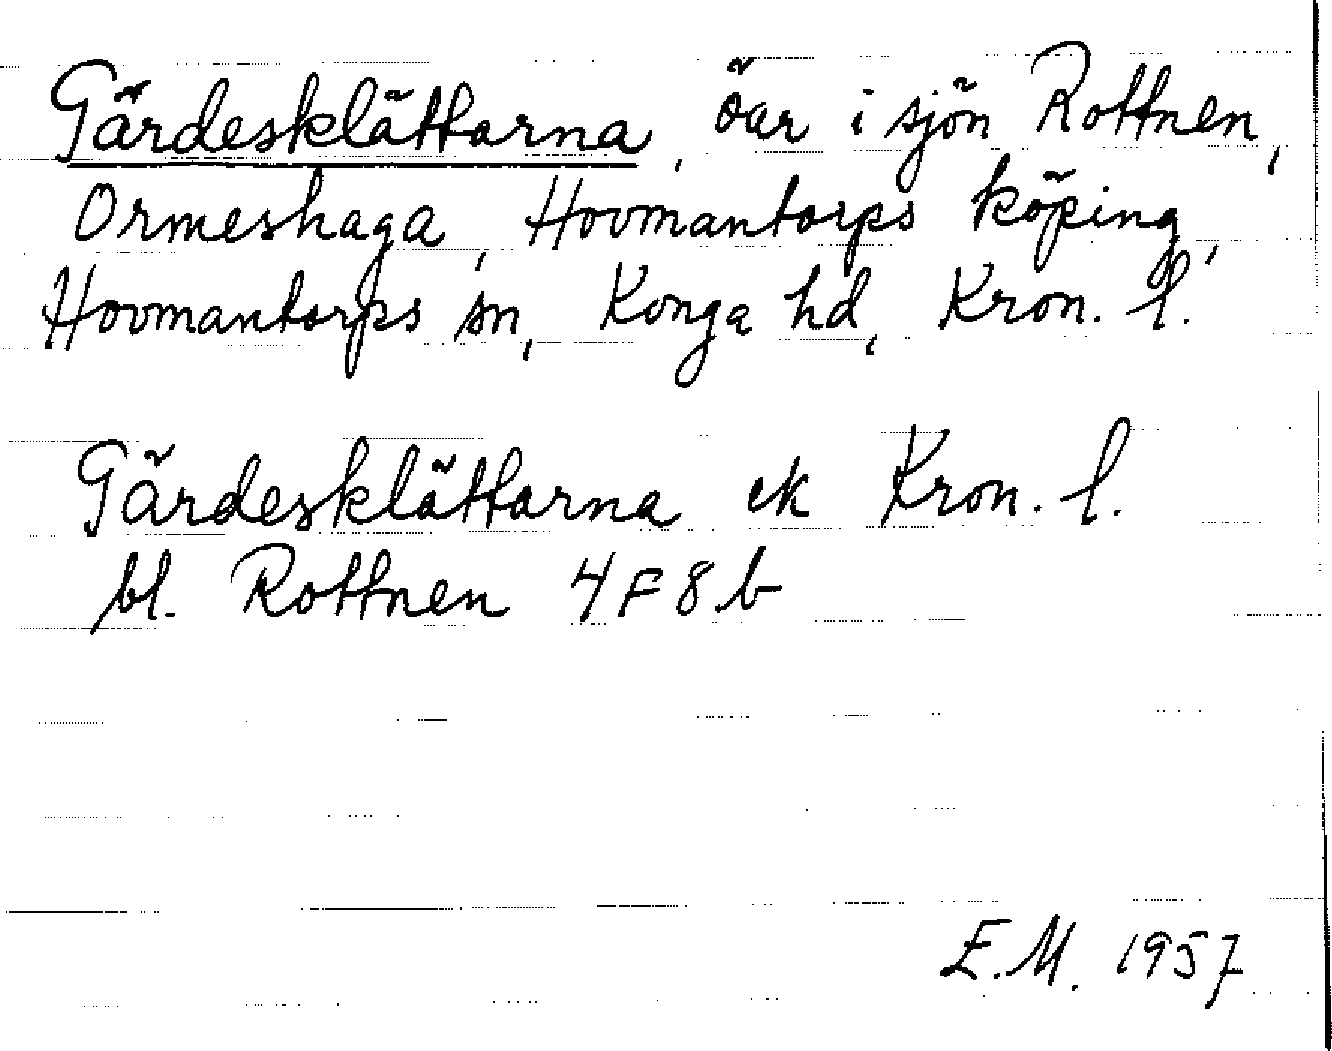 Gärdesklättarna, öar i sjön Rottnen,
Ormeshaga, Hovmantorps köping,
Hovmantorps sn, Konga hd, Kron. l.
Gärdesklättarna ek Kron. l.
bl. Rottnen 4F8b
E.M. 1957